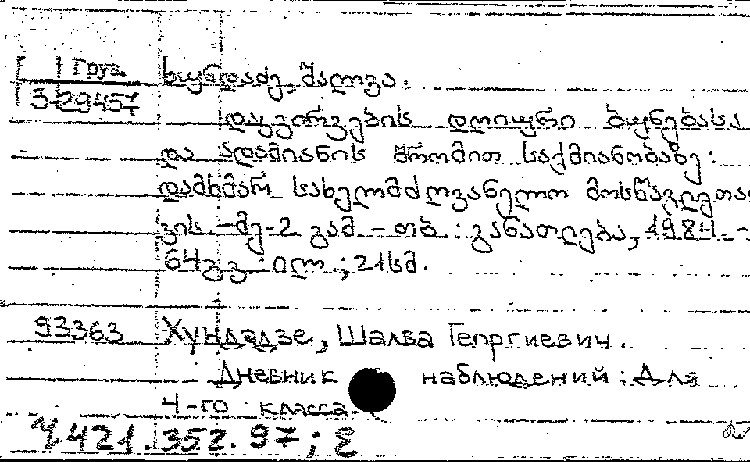 Груз.
3-29457
ხუნდაძე, შალვა.
დაკვირვების დღიური ბუნებასა
და ადამიანის შრომით საქმიანობაზე:
დამხმარ. სახელმძღვანელო მოსწავლეთა
-მე-2 გამ. - თბ.: განათლება, 1984. -
64გვ. ილ.; 21სმ.
93363 Хундадзе, Шалва Георгиевич.
Дневник наблюдений: Для
4-го класса
Ч421.352.97;